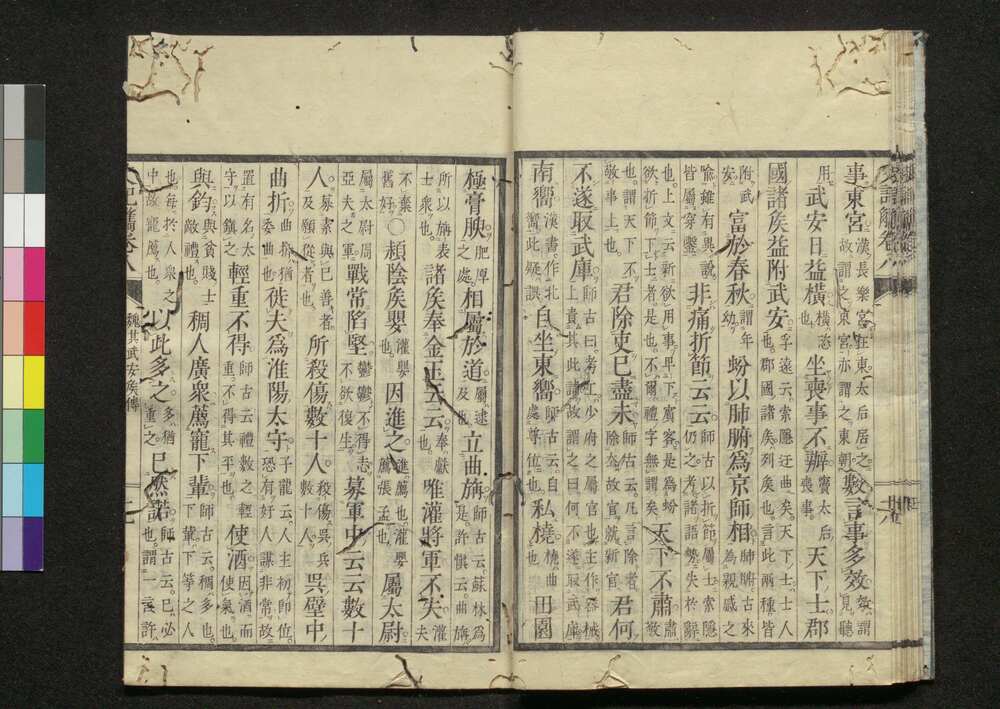 事東宮漢長樂宮在東太后居之故謂之東宮亦謂之東朝數言事多效效謂見聽
用武安日益橫橫恣也坐喪事不辦竇太后喪事天下士郡
國諸矦益附武安子遠云索隱迂曲矣天下士士人也郡國諸矣列矦也言此兩種皆
附武安富於春秋謂年幼蚡以肺腑爲京師相肺腑古來為親戚之
喩雖有異說皆屬穿鑿非痛折節云云師古以折節屬士索隱仍之考諸語勢失於辭
也上文云新欲用事卑下賓客是為蚡欲折節下士者是也不爾禮字無謂矣天下不肅肅敬
也謂天下不敬事上也君除吏已盡未師古云凡言除者除去故官就新官君何
不遂取武庫師古曰考工少府之屬官也主作器械上責其此請故謂之曰何不遂取武庫
南嚮漢書作北嚮此疑誤自坐東嚮師古云自處尊位也私橈橈曲也田園
極膏腴肥厚之處相屬於道屬逮及也立曲旃師古云蘇林為是許慎云曲旃
所以旃表士衆也諸矦奉金玉云云奉獻也唯灌將軍不失灌夫
不棄舊好○潁陰矦嬰灌嬰也因進之進薦也灌嬰薦張孟也屬太尉
屬太尉周亞夫之軍戰常陷堅鬱鬱不得志不欲復生募軍中云云數十
人募素與己善者及願從者也所殺傷數十人殺傷吳兵數十人吳壁中
曲折曲折猶委曲也徙夫爲淮陽太守子龍云人主初卽位恐有好人謀非常故
置有名太守以鎭之輕重不得師古云禮數之輕重不得其平也使酒因酒而使氣也
與鈞與貧賤士敵禮也稠人廣衆薦寵下輩師古云稠多也下輩下等之人
也每於人衆之中故寵薦也以此多之多猶重之已然諾師古云已必也謂一言許
魏其武安矦傳